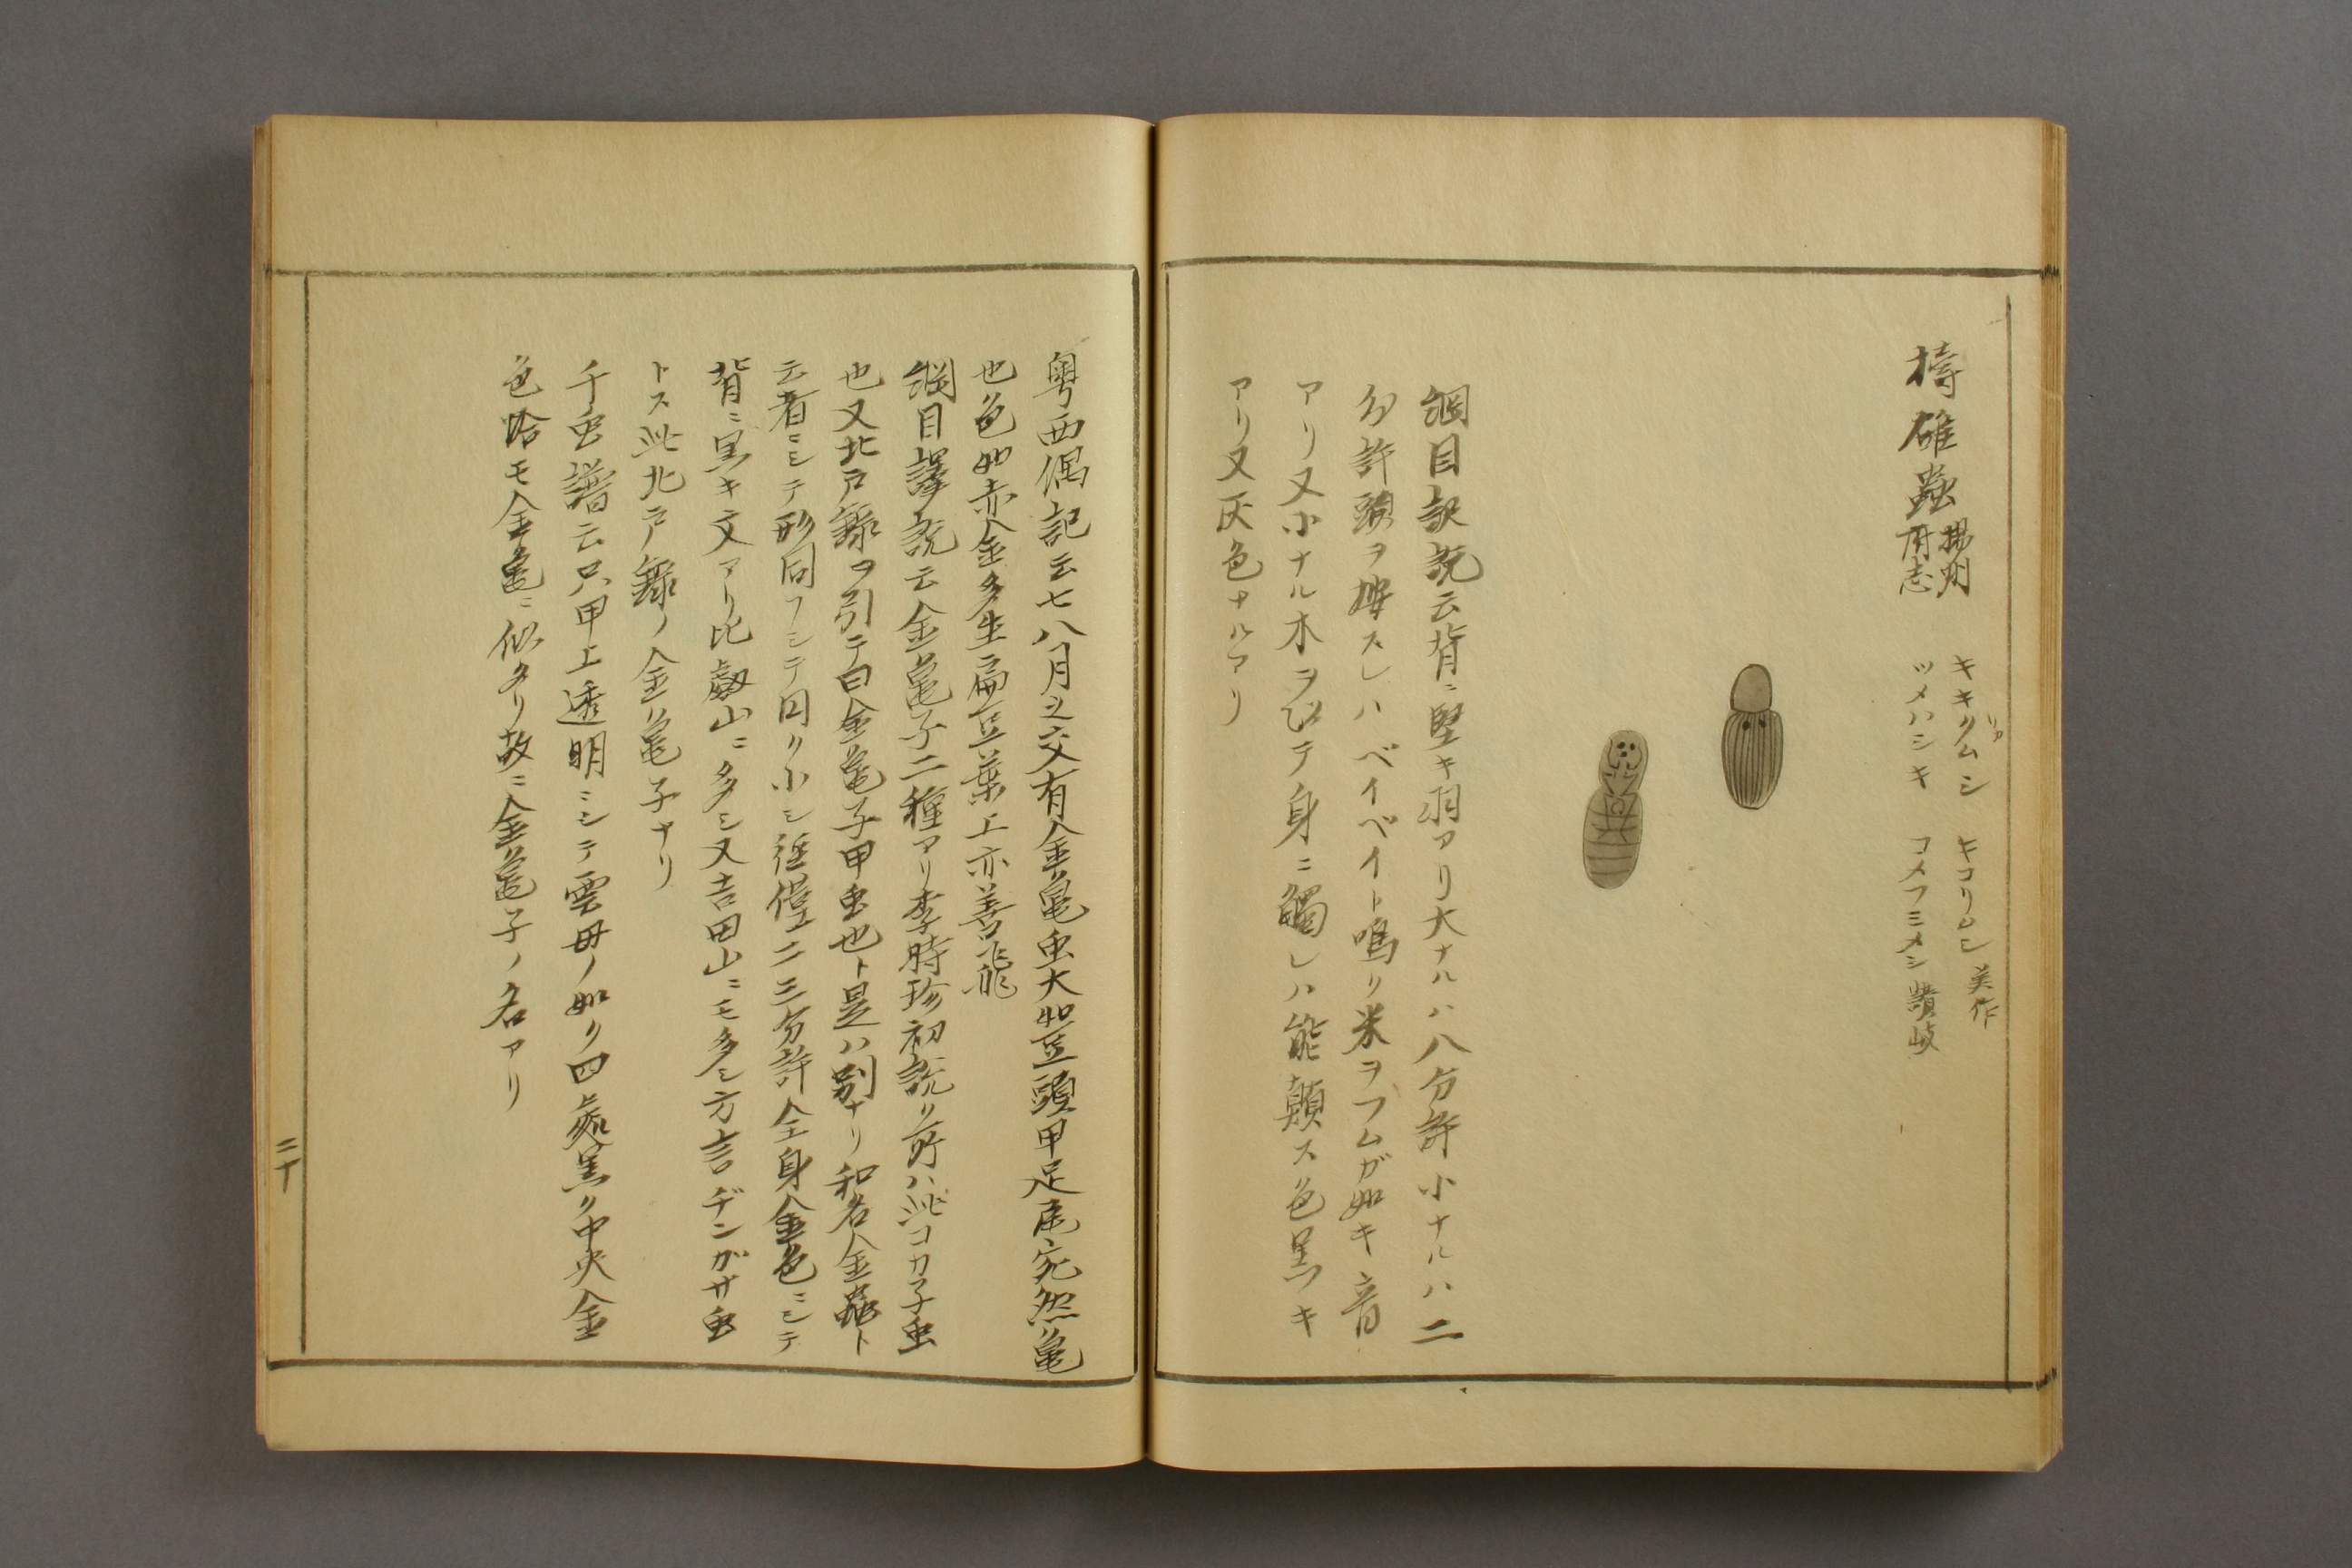 梼碓蟲 揚州府志
キキリムシ キコリムシ 美作
ツメハシキ コメフミメシ 讃岐
綱目訳説云背ニ堅キ羽アリ大ナルハ八分許小ナルハ二
分許頭ヲ按スレハベイベイト鳴リ米ヲフムガ如キ音
アリ又小ナル木ヲ以テ身ニ觸レハ能顛ス色黒キ
アリ又灰色ナルアリ
粤西偶記云七八月之交有金亀虫大如豆頭甲足尾宛然亀
也色如赤金多生扁豆葉上亦善飛
綱目譯説云金亀子二種アリ李時珍初説リ所ハ此コカ子虫
也又北戸録ヲ引テ曰金亀子甲虫也ト是ハ別ナリ和名金蟲ト
云者ニシテ形同フシテ円ク小シ徑僅二三分許全身金色ニシテ
背ニ黒キ文アリ比叡山ニ多シ又吉田山ニモ多シ方言ヂンガサ虫
トス此北戸録ノ金亀子ナリ
千虫譜云只甲上透明ニシテ雲母ノ如ク四處黒ク中央金
色恰モ金亀ニ似タリ故ニ金亀子ノ名アリ
二十